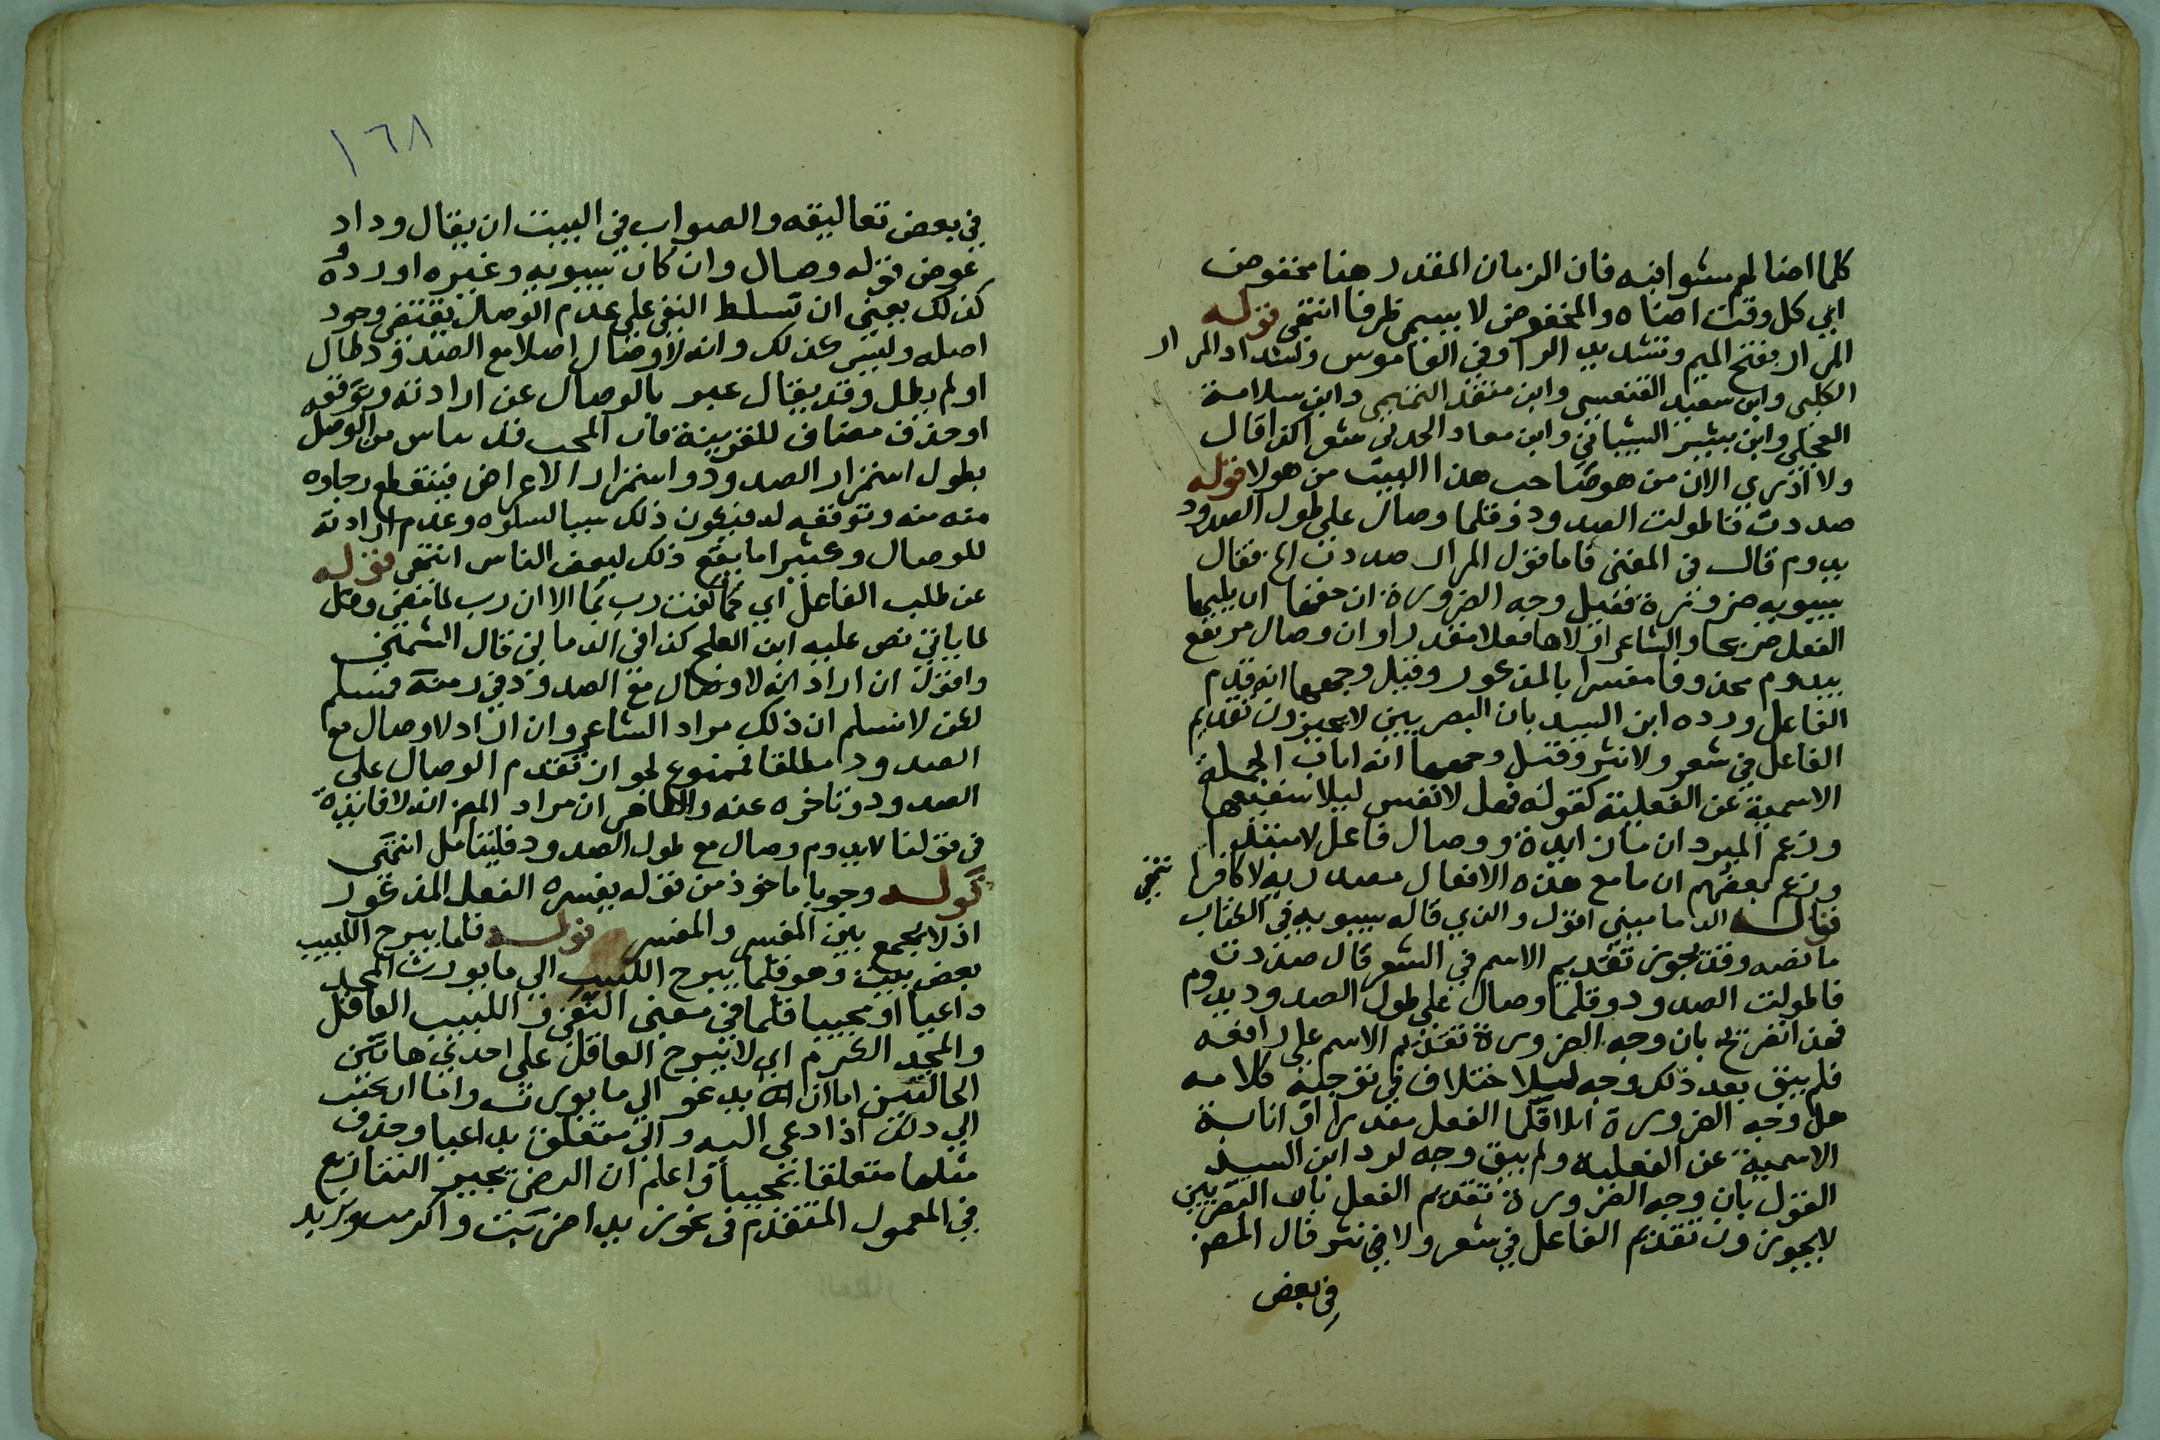 كلما اضا لهم مشوا فيه فان الزمان المقدر هنا مخفوض
اي كل وقت اضاه والمخفوض لا يسمى ظرفا انتهى قوله
المرار بفتح الميم وتشديد الرا وفي القاموس وكشداد المرار
الكلبي وابن سعيد الفقعسي وابن منقذ التميمي وابن سلامة
العجلي وابن بشير الشيباني وابن معاد الحدلي شعرا كذا قال
ولا ادري الان من هو صاحب هذا البيت من هولا قوله
صددت فاطولت الصدود وقلما وصال على طول الصدود
يدوم قال في المغني فاما قول المرار صددت الخ فقال
سيبويه ضرورة فقيل وجه الضرورة ان حقها ان يليها
الفعل صريحا والشاعر اولاها فعلا مقدرا وان وصال مرتفع
بيدوم محذوفا مفسرا بالمذكور وقيل وجهها انه قدم
الفاعل ورده ابن السيد بان البصريين لا يجيزون تقديم
الفاعل في شعر ولا نثر وقيل وجهها انه اناب الجملة
الاسمية عن الفعلية كقوله فهل لا نفس ليلا شفيعها
وزعم المبرد ان ما زايدة ووصال فاعل لا مبتدا
وزعم بعضهم ان ما مع هذه الافعال مصدرية لا كافة انتهى
قال الدماميني اقول والذي قاله سيبويه في الكتاب
ما نصه وقد يجوز تقديم الاسم في الشعر قال صددت
فاطولت الصدود وقلما وصال على طول الصدود يدوم
فهذا تصريح بان وجه الضرورة تقديم الاسم على رافعه
فلم يبق بعد ذلك وجه للاختلاف في توجيه كلامه
هل وجه الضرورة ايلا قلما الفعل مقدرا او انابة
الاسمية عن الفعلية ولم يبق وجه لرد ابن السيد
القول بان وجه الضرورة تقديم الفعل بان البصريين
لا يجوزون تقديم الفاعل في شعر ولا في نثر قال المص
في بعض
١٦٨
في بعض تعاليقه والصواب في البيت ان يقال وداد
عوض قوله وصال وان كان سيبويه وغيره اوردوه
كذلك يعني ان تسلط النفي على عدم الوصال يقتضي وجود
اصله وليس كذلك وانه لا وصال اصلا مع الصدود طال
او لم يطل وقد يقال عبر بالوصال عن ارادته وتوقعه
او حذف مضاف للقرينة فان المحب قد ياس من الوصل
بطول استمرار الصدود واستمرار الاعراض فينقطع رجاوه
منه وتوقعه له فيكون ذلك سببا لسلوه وعدم ارادته
للوصال وكثيرا ما يقع ذلك لبعض الناس انتهى قوله
عن طلب الفاعل اي كما كفت رب بما الا ان رب لما مضى وقل
لما ياتي نص عليه ابن العلج كذا في الدماميني قال الشمني
واقول ان اراد انه لا وصال مع الصدود في زمنه فمسلم
لكن لا نسلم ان ذلك مراد الشاعر وان اراد لا وصال مع
الصدود مطلقا فممنوع لجواز تقدم الوصال على
الصدود وتاخره عنه والظاهر ان مراد المص انه لا فايدة
في قولنا لا يدوم وصال مع طول الصدود فليتامل انتهى
قوله وجوبا ماخوذ من قوله يفسره الفعل المذكور
اذ لا يجمع بين المفسر والمفسر قوله قلما يبرح اللبيب
بعض بيت وهو قلما يبرح اللبيب الى ما يورث المجد
داعيا او مجيبا قلما في معنى النفي واللبيب العاقل
والمجد الكرم اي لا يبرح العاقل على احدى هاتين
الحالتين اما ان يدعو الى ما يورثه واما ان يجيب
الى ذلك اذا دعي اليه والى متعلق بداعيا وحذف
مثلها متعلقا بمجيبا واعلم ان الرضى يجيز التنازع
في المعمول المتقدم في نحو زيدا ضربت واكرمت وبزيد